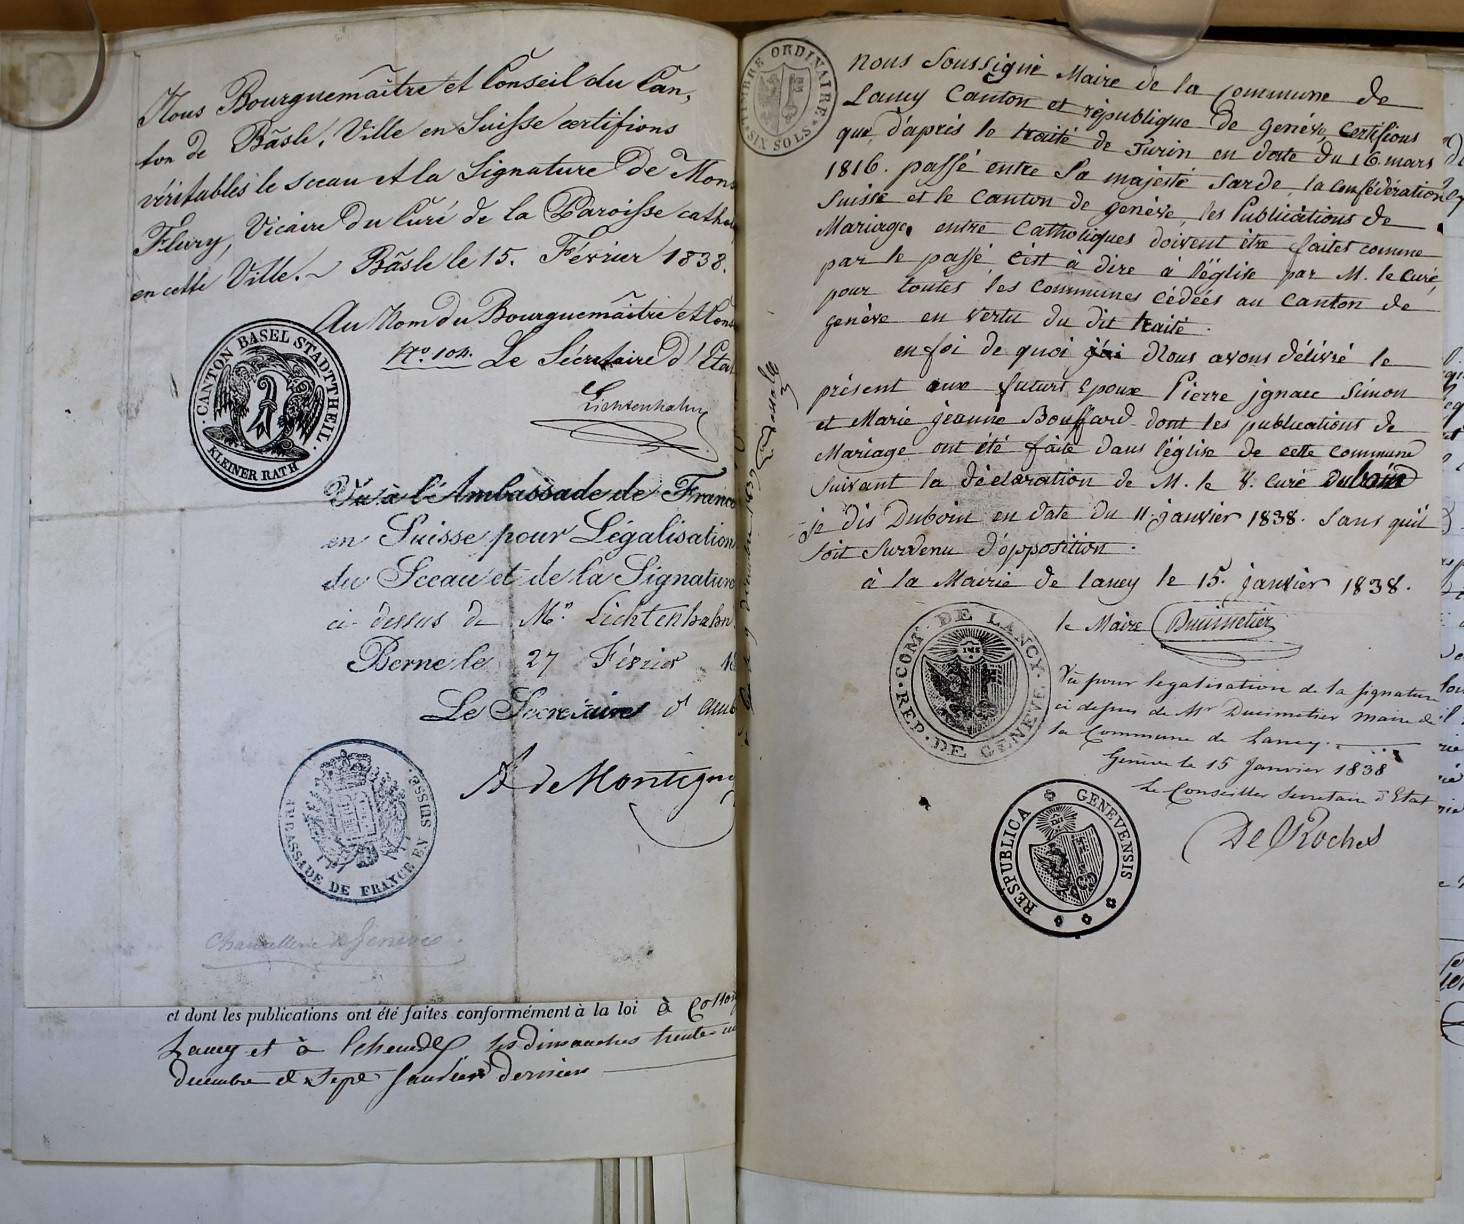 Nous Bourguemaître et Conseil du Can,
ton de Bâsle, Ville en Suisse certifions
véritables le sceau et la Signature de Mons
Fleury, Vicaire du Curé de la Paroisse cathol
en cette Ville. Bâsle le 15. Février 1838.
Au Nom du Bourguemaître et Cons
No. 104. Le Sécretaire d'Etat
Lichtenhahn
CANTON BASEL STADTTHEIL
KLEINER RATH
Vu à l'Ambassade de France
en Suisse pour Légalisation
du Sceau et de la Signature
ci dessus de Mr. Lichtenhahn
Berne le 27 Février 18
Le Secrétaire d'amb
A de Montigny
AMBASSADE DE FRANCE EN SUISSE
Chancellerie de Genève.
et dont les publications ont été faites conformément à la loi à
Lancy et à les dimanches trente-un
decembre et sept Janvier derniers
TIMBRE ORDINAIRE
SIX SOLS
nous Soussigné Maire de la Commune de
Lancy Canton et république de genève Certifions
que, d'après le traité de Turin en date du 16 mars
1816. passé entre Sa majesté Sarde, la Confédération
Suisse et le Canton de genève, les Publications de
Mariage, entre Catholiques doivent être faites comme
par le passé c'est à dire à l'église par M. le curé,
pour toutes les communes cédées au canton de
genève en vertu du dit traité.
en foi de quoi j'ai Nous avons délivré le
présent aux futurs Epoux Pierre jgnace Simon
et Marie jeanne Bouffard dont les publications de
Mariage ont été faite dans l'église de cette commune
Suivant la déclaration de M. le V. curé
je dis Duboin en date du 11. janvier 1838. Sans qu'il
soit Survenu d'opposition.
à la Mairie de lancy le 15. janvier 1838.
le Maire Ducimetier
COM. DE LANCY
REP. DE GENEVE
Vu pour legalisation de la signature
ci dessus de Mr Ducimetier maire de
la Commune de Lancy.
Genève le 15 Janvier 1838
Le Conseiller Secretaire d'Etat
De Roches
RESPUBLICA GENEVENSIS